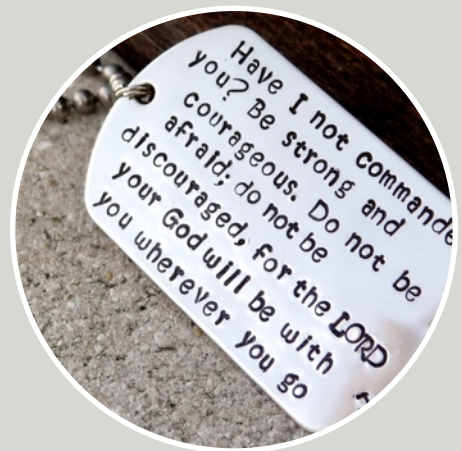 Have I not commande
you? Be strong and
courageous. Do not be
afraid; do not be
discouraged, for the LORD
your God will be with
you wherever you go